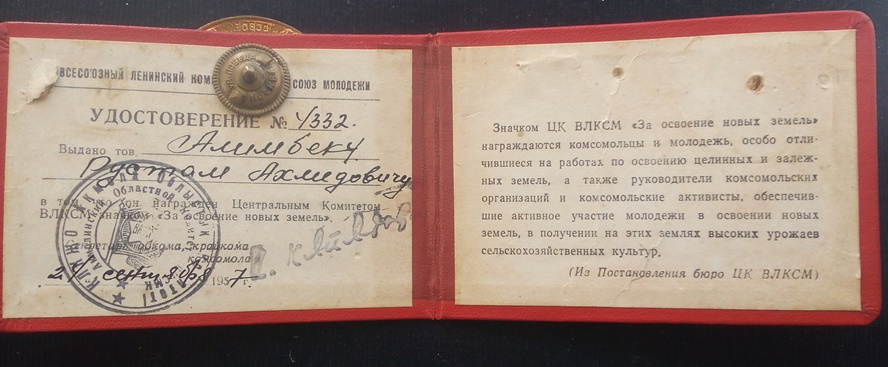 ВСЕСОЮЗНЫЙ ЛЕНИНСКИЙ КОММ СОЮЗ МОЛОДЕЖИ
УДОСТОВЕРЕНИЕ № 1332.
Выдано тов. Алимбеку
Рустам Ахмедовичу
в том, что он награжден Центральным Комитетом
ВЛКСМ значком «За освоение новых земель».
Секретарь обкома, крайкома
комсомола
21 сентября 1957 г.
Значком ЦК ВЛКСМ «За освоение новых земель»
награждаются комсомольцы и молодежь, особо отли-
чившиеся на работах по освоению целинных и залеж-
ных земель, а также руководители комсомольских
организаций и комсомольские активисты, обеспечив-
шие активное участие молодежи в освоении новых
земель, в получении на этих землях высоких урожаев
сельскохозяйственных культур.
(Из Постановления бюро ЦК ВЛКСМ)